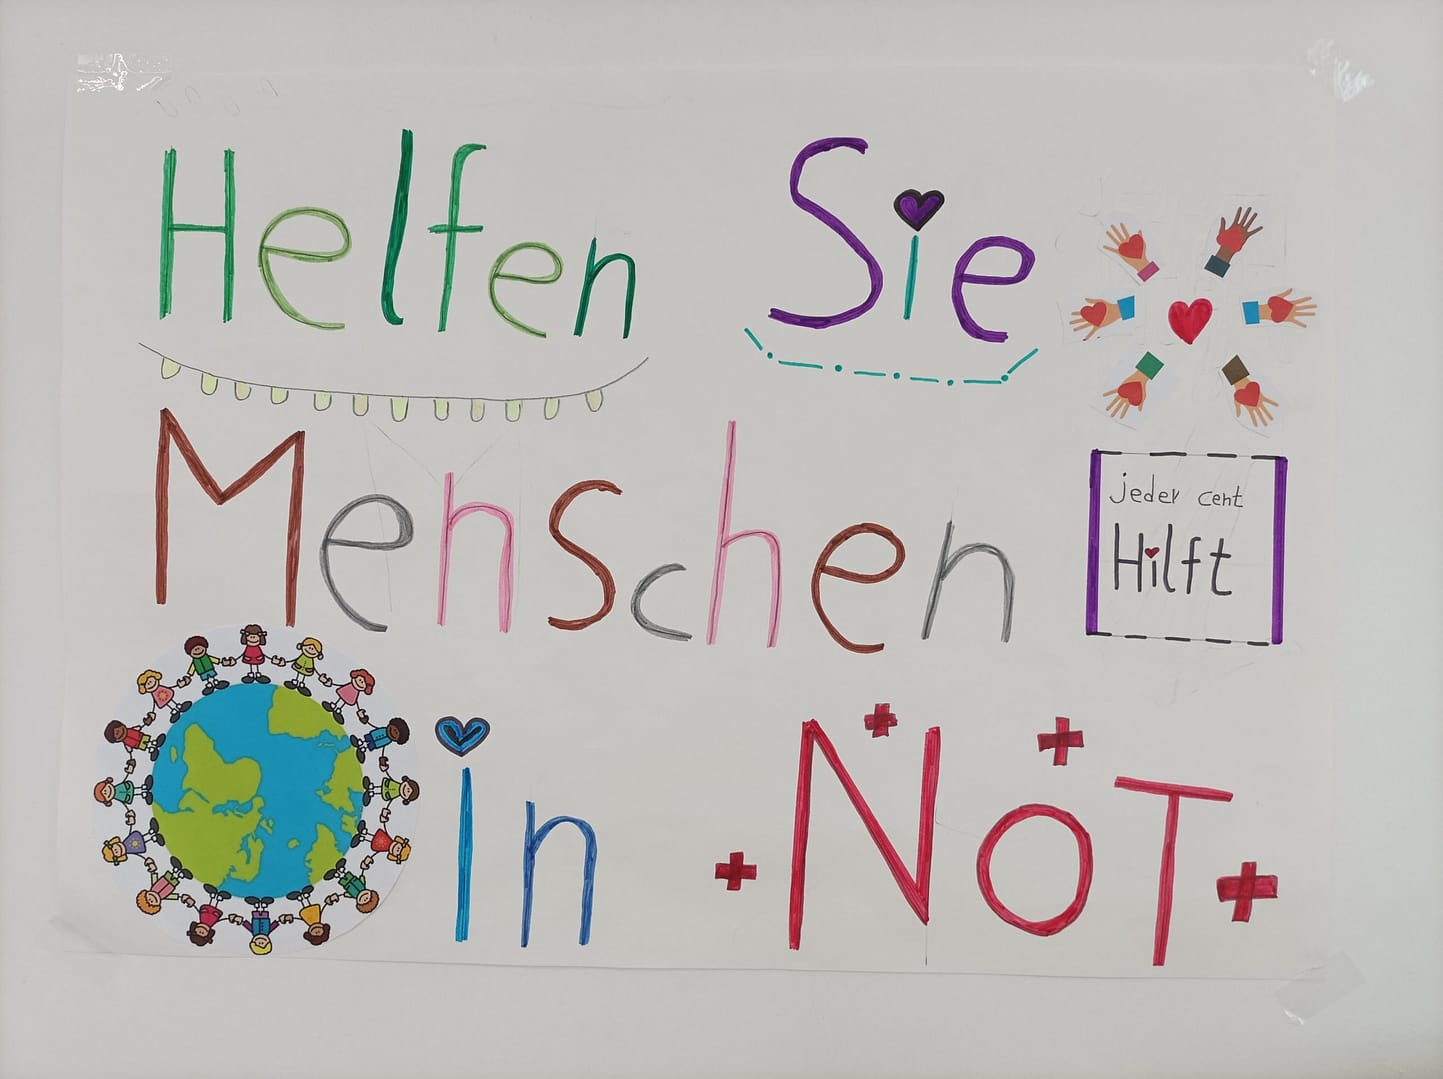 Helfen Sie
Menschen
jeder cent
Hilft
in NoT